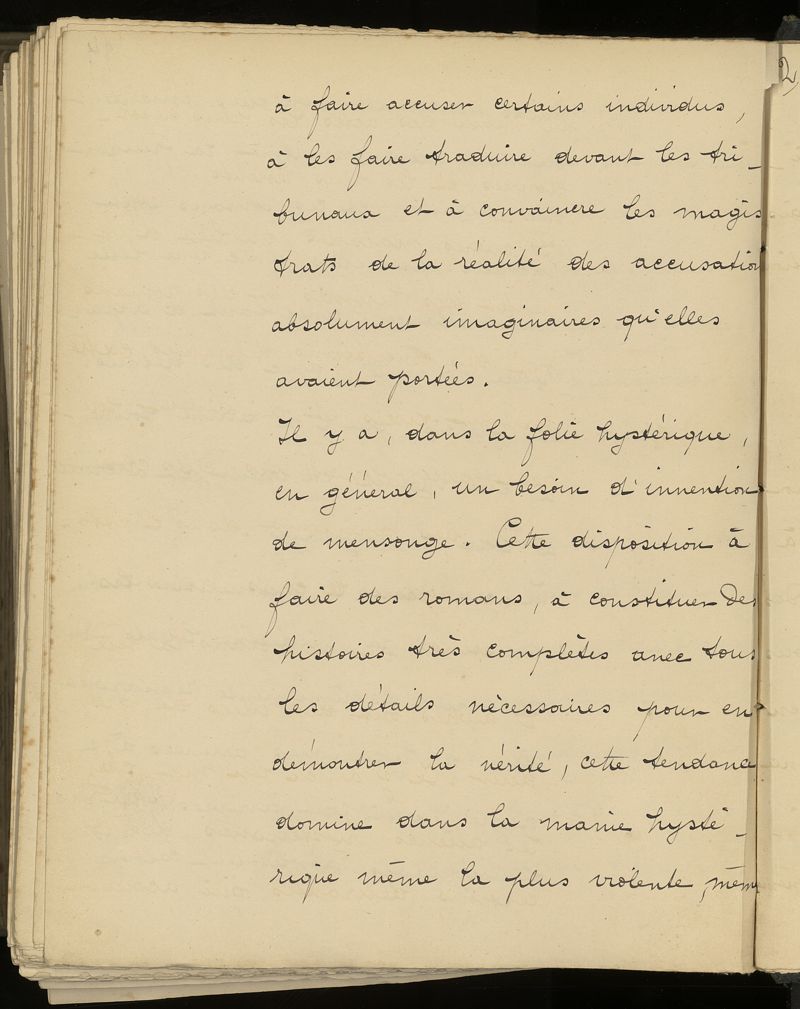 à faire accuser certains individus,
à les faire traduire devant les tri_
bunaux et à convaincre les magis
trats de la réalité des accusation
absolument imaginaires qu'elles
avaient portées.
Il y a, dans la folie hystérique,
en général, un besoin d'invention
de mensonge. Cette disposition à
faire des romans, à constituer des
histoires très complètes avec tous
les détails nécessaires pour en
démontrer la vérité, cette tendance
domine dans la manie hysté_
rique même la plus violente, même
2